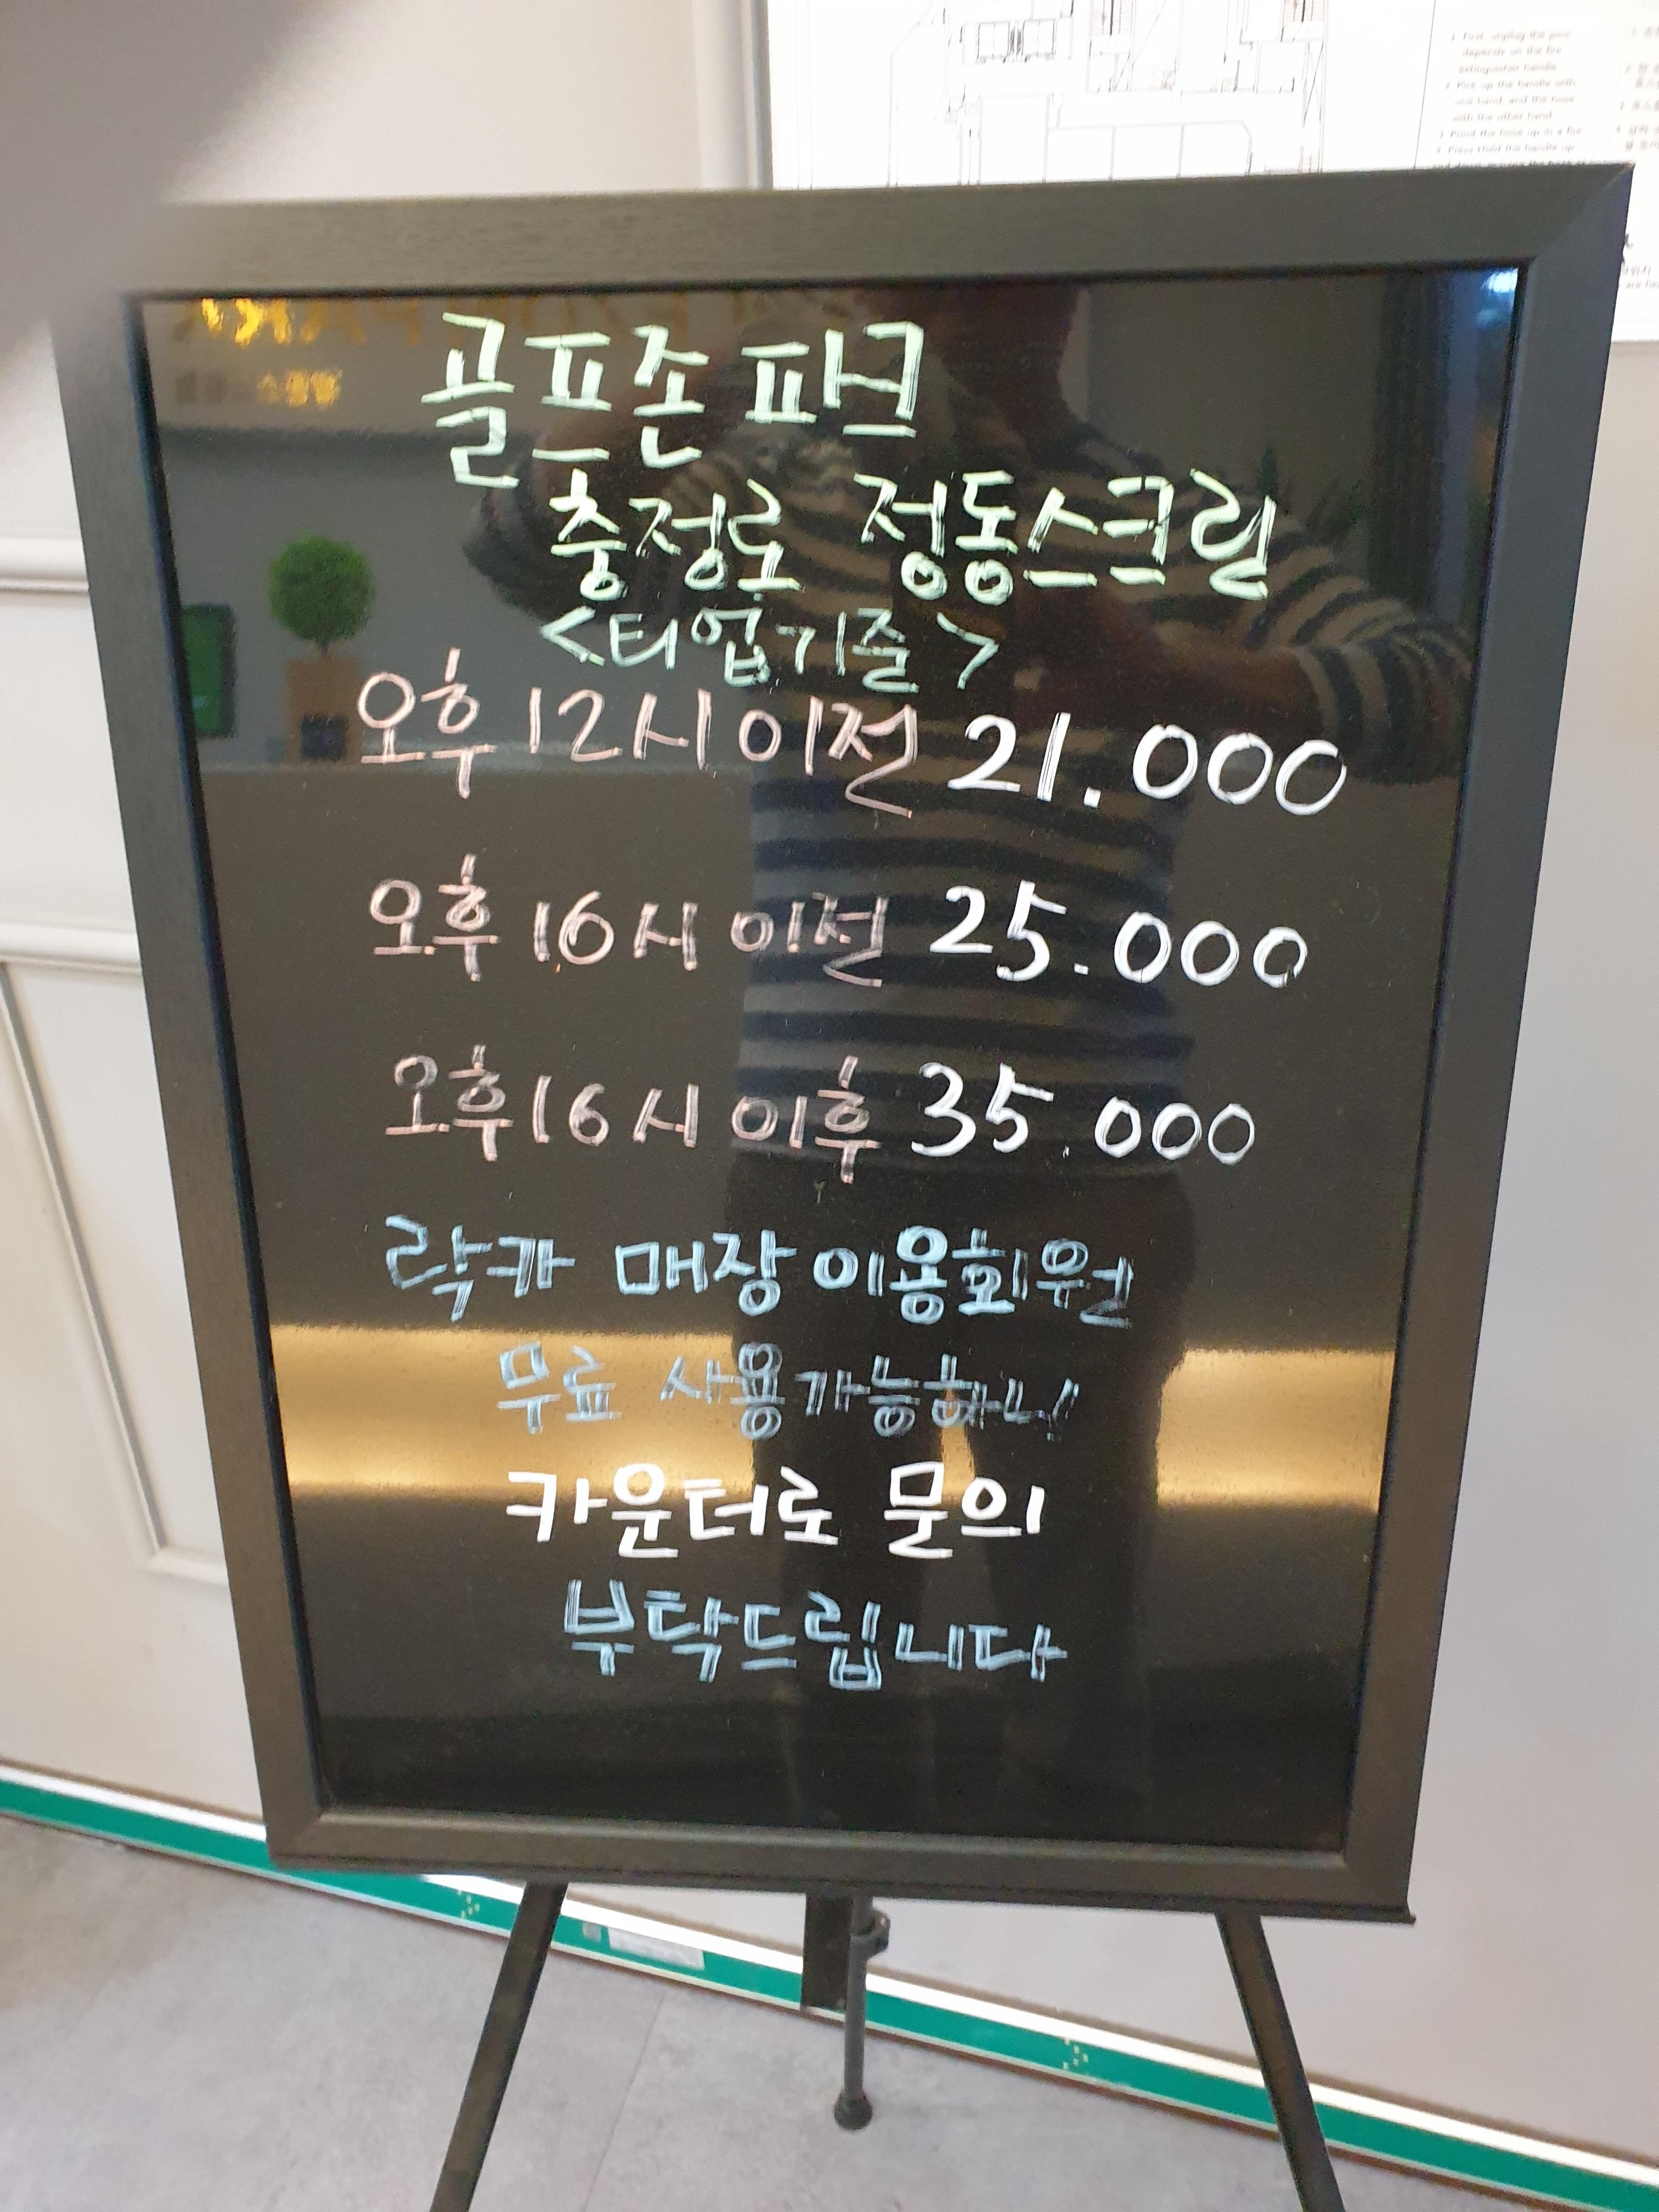 골프존 파크
충정로 정동스크린
<티업기준>
오후 12시 이전 21.000
오후 16시 이전 25.000
오후 16시 이후 35.000
락카 매장 이용회원
무료 사용가능하니!
카운터로 문의
부탁드립니다
1. First, unplug the pins
depends on the fire
extinguisher handle
2. Pick up the handle with
one hand, and the hose
with the other hand
3. Point the hose up in a fire
4. Press Hold the handle up